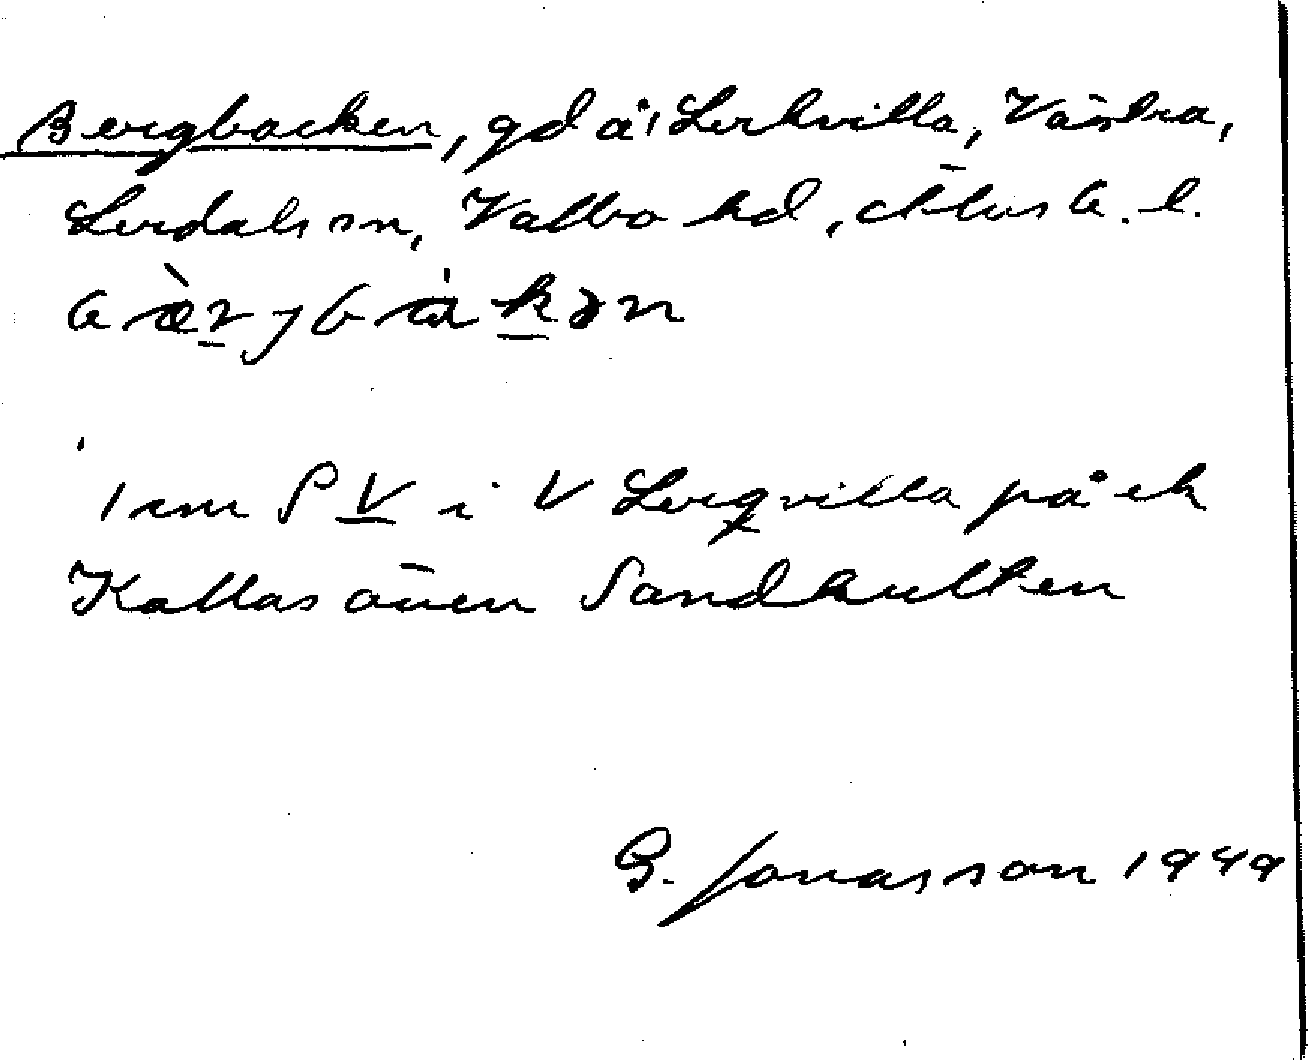 Bergbacken, gd å Lerkvilla, Västra,
Lerdals sn, Valbo hd, Älvsb. l.
bæ̀rjbàkən
1 cm SV i V Lerqvilla på ek
Kallas även Sandkullen
G. Jonasson 1949